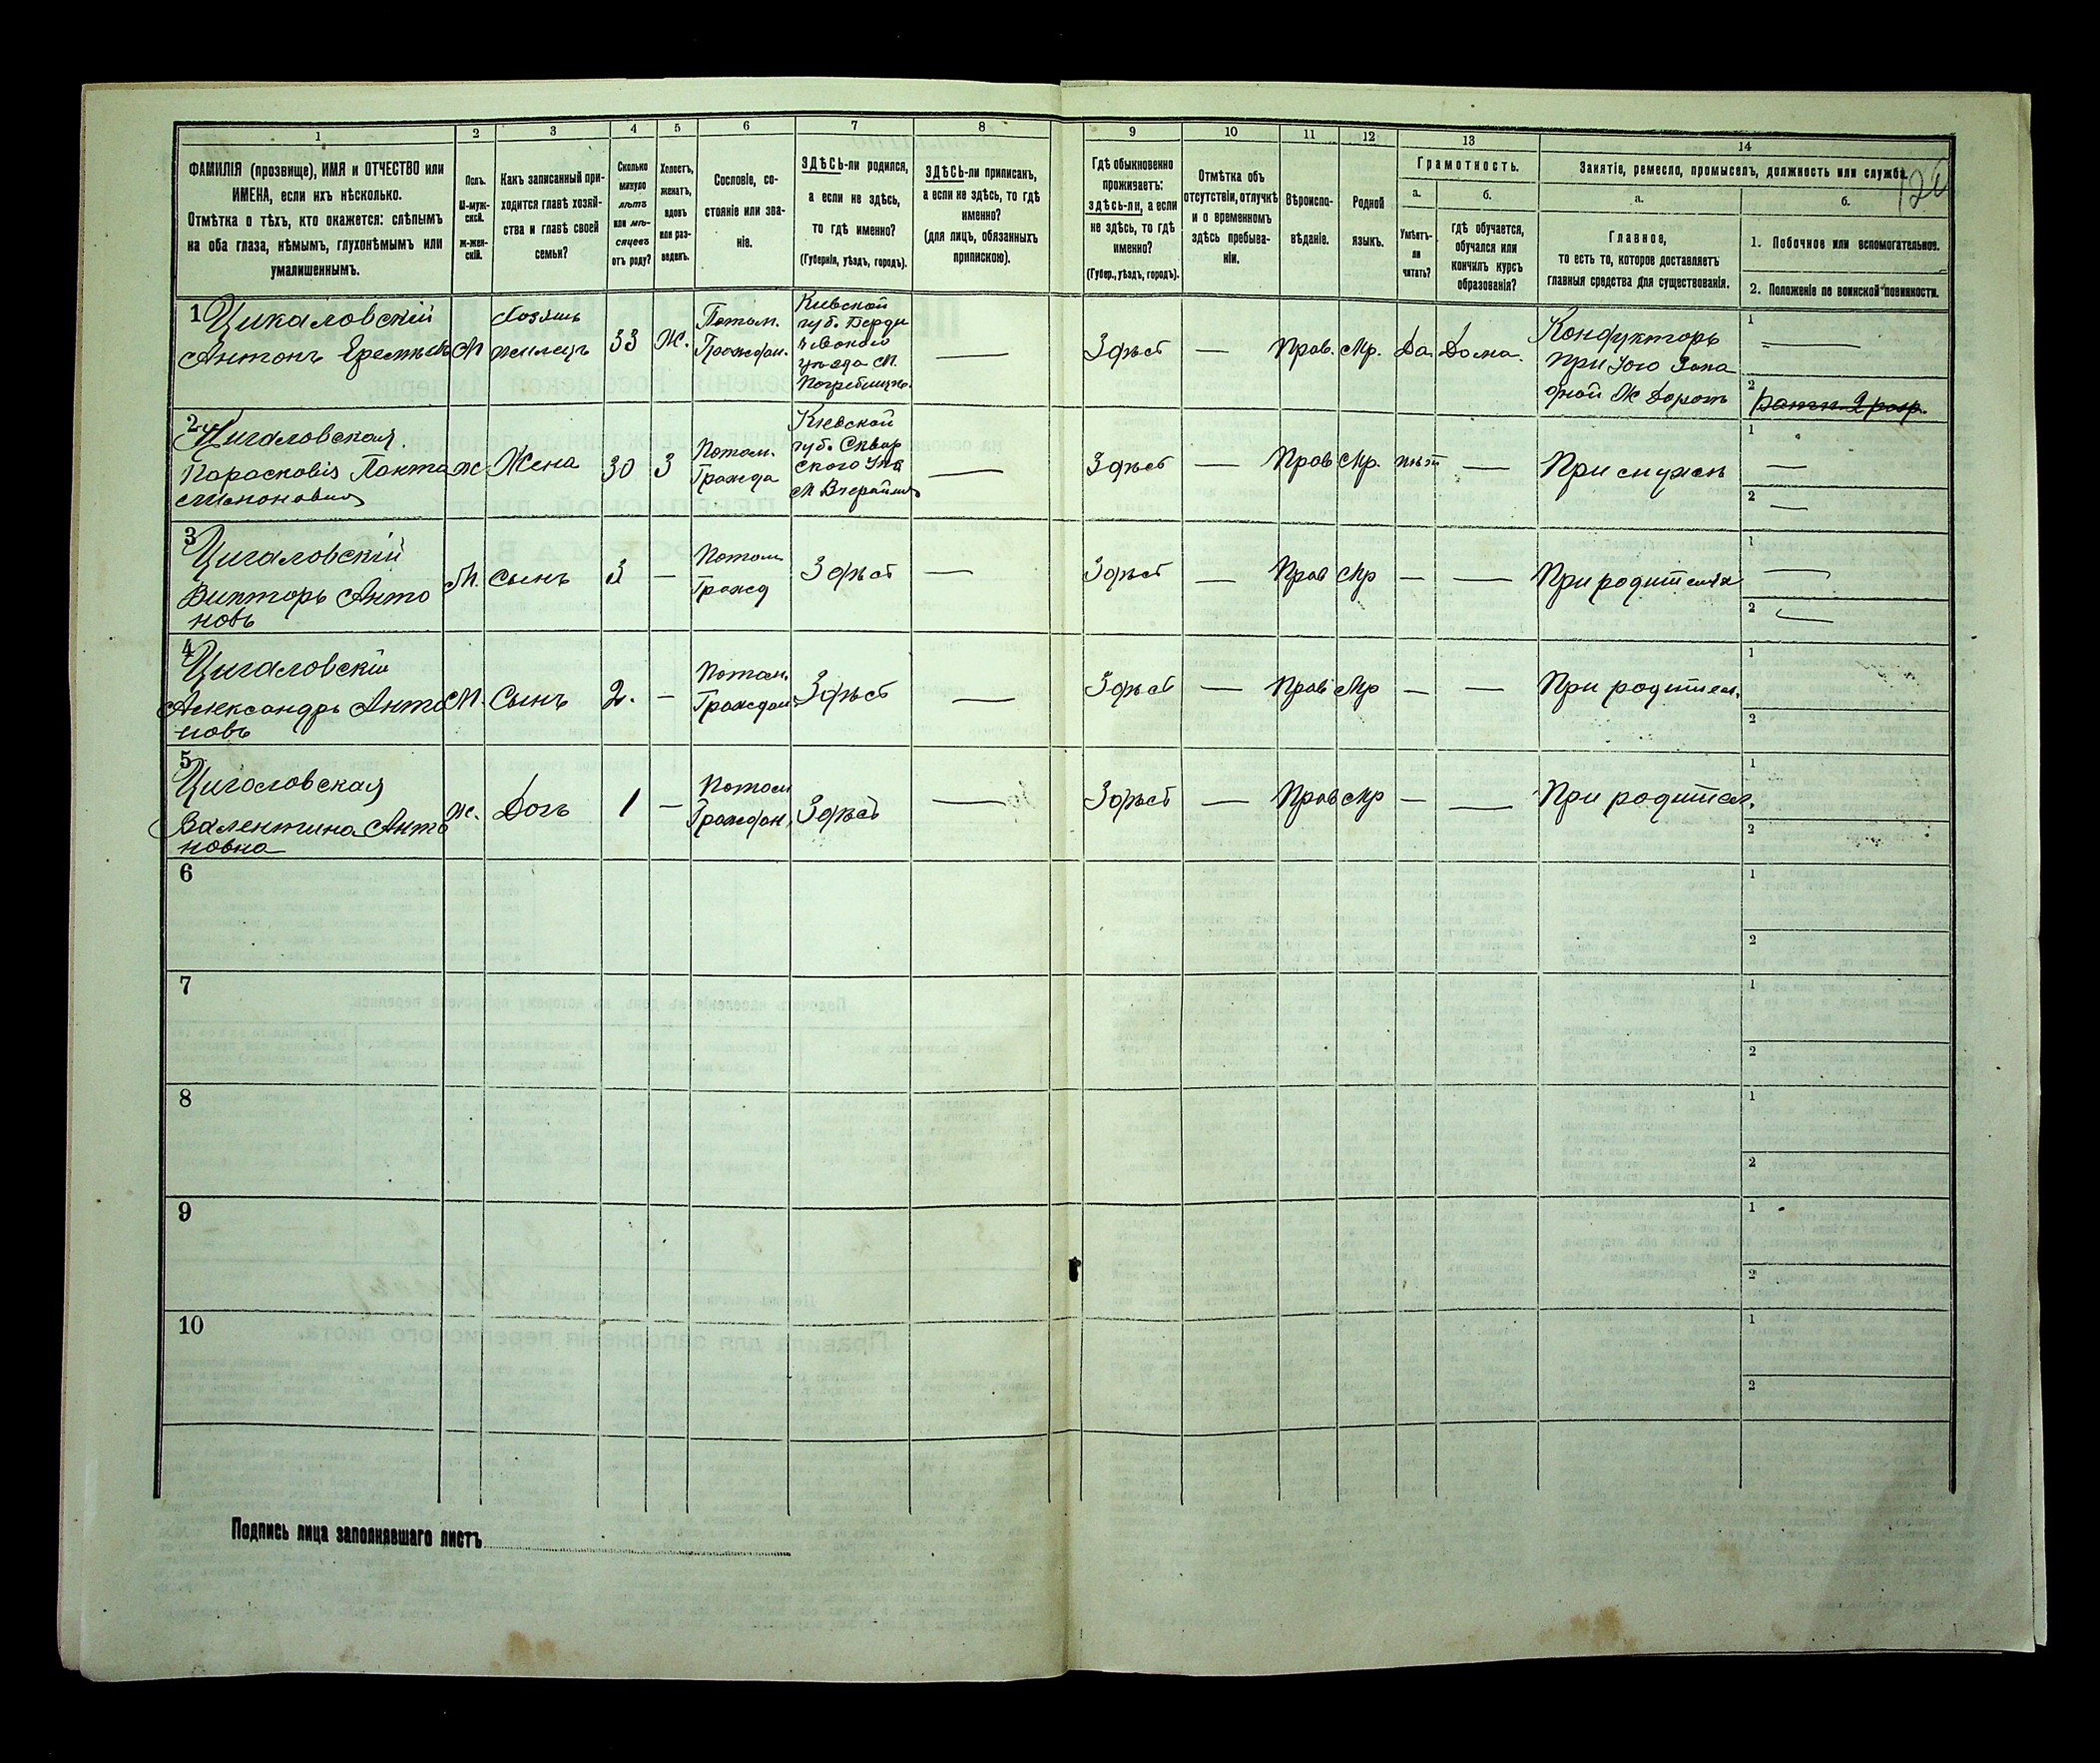 1 2 3 4 5 6 7 8 9 10 11 12 13 14
ФАМИЛІЯ (прозвище), ИМЯ и ОТЧЕСТВО или
ИМЕНА, если ихъ нѣсколько.
Отмѣтка о тѣхъ, кто окажется: слѣпымъ
на оба глаза, нѣмымъ, глухонѣмымъ или
умалишеннымъ.
Полъ.
М-муж-
ской.
ж-жен-
скій.
Какъ записанный при-
ходится главѣ хозяй-
ства и главѣ своей
семьи?
Сколько
минуло
лѣтъ
или мѣ-
сяцевъ
отъ роду?
Холостъ,
женатъ,
вдовъ
или раз-
веденъ.
Сословіе, со-
стояніе или зва-
ніе.
ЗДѢСЬ-ли родился,
а если не здѣсь,
то гдѣ именно?
(Губернія, уѣздъ, городъ).
ЗДѢСЬ-ли приписанъ,
а если не здѣсь, то гдѣ
именно?
(для лицъ, обязанныхъ
припискою).
Гдѣ обыкновенно
проживаетъ:
здѣсь-ли, а если
не здѣсь, то гдѣ
именно?
(Губер., уѣздъ, городъ).
Отмѣтка объ
отсутствіи, отлучкѣ
и о временномъ
здѣсь пребыва-
ніи.
Вѣроиспо-
вѣданіе.
Родной
языкъ.
Грамотность.
а.
Умѣетъ-
ли
читать?
б.
гдѣ обучается,
обучался или
кончилъ курсъ
образованія?
Занятіе, ремесло, промыселъ, должность или служба.
а.
Главное,
то есть то, которое доставляетъ
главныя средства для существованія.
б.
1. Побочное или вспомогательное.
2. Положеніе по воинской повинности.
1
Цикаловскій
Антонъ
М
Хозяинъ
жилецъ
33
Ж.
Потом.
Граждан.
Кіевской
губ. Берди
чевскаго
уѣзда М.
Погребище
—
Здѣсь
—
Прав.
Мр.
Да
Дома.
Кондукторъ
при Юго Запа
дной Ж Дорогѣ
1 —
2 Ратн. 2 разр.
2
Цигаловская
Парасковія Панта
лимоновна
ж
Жена
30
З
Потом.
Гражда
Кіевской
губ. Сквир
ского Уѣз
М Вчерайше
—
Здѣсь
—
Прав
Мр.
нѣт
—
При мужѣ
1 —
2 —
3
Цигаловскій
Викторъ Анто
новъ
М.
Сынъ
3
—
Потом
Гражд
Здѣсь
—
Здѣсь
—
Прав
Мр
—
—
При родителях
1 —
2 —
4
Цигаловскій
Александръ Анто
новъ
М.
Сынъ
2.
—
Потом.
Граждан
Здѣсь
—
Здѣсь
—
Прав
Мр
—
—
При родител.
1
2
5
Цигаловская
Валентина Анто
новна
ж.
Дочь
1
—
Потом
Граждан,
Здѣсь
—
Здѣсь
—
Прав
Мр
—
—
При родител.
1
2
6
1
2
7
1
2
8
1
2
9
1
2
10
1
2
Подпись лица заполнявшаго листъ